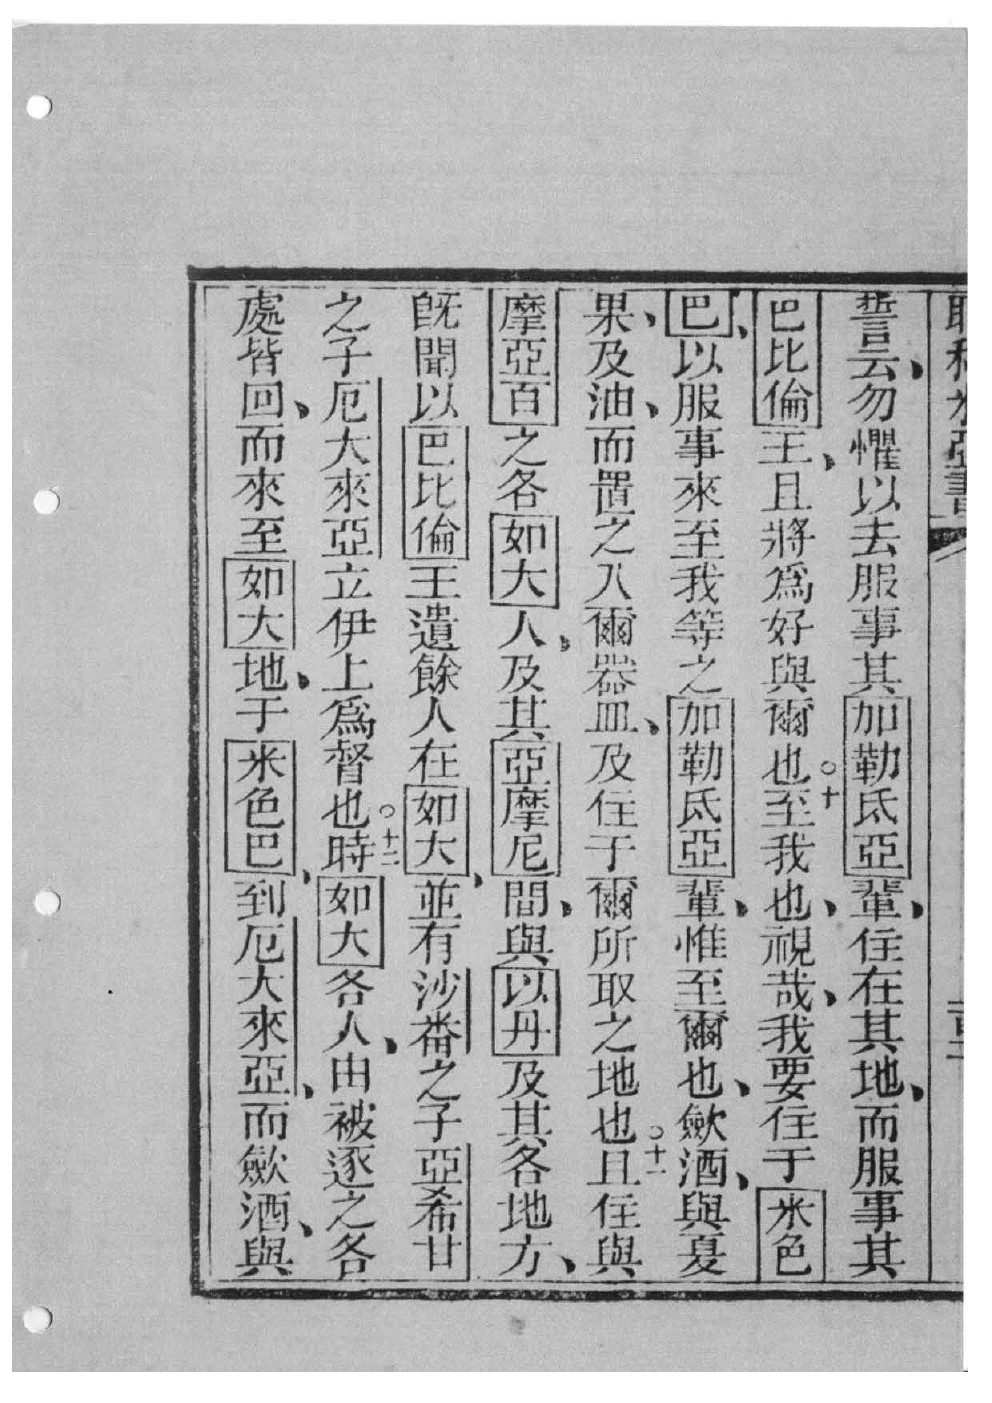 誓言云、勿懼以去服事其加勒氐亞輩、住在其地、而服事其
巴比倫王、且將爲好與爾也○十至我也、視哉、我要住于米色
巴、以服事來至我等之加勒氐亞輩、惟至爾也、歛酒、與夏
果、及油、而置之入爾器皿、及住于爾所取之地也○十一且住與
摩亞百之各如大人、及其亞摩尼間、與以丹及其各地方、
旣聞以巴比倫王遺餘人在如大、並有沙番之子亞希甘
之子厄大來亞立伊上爲督也○十二時如大各人、由被逐之各
處皆回、而來至如大地、于米色巴、到厄大來亞、而歛酒、與